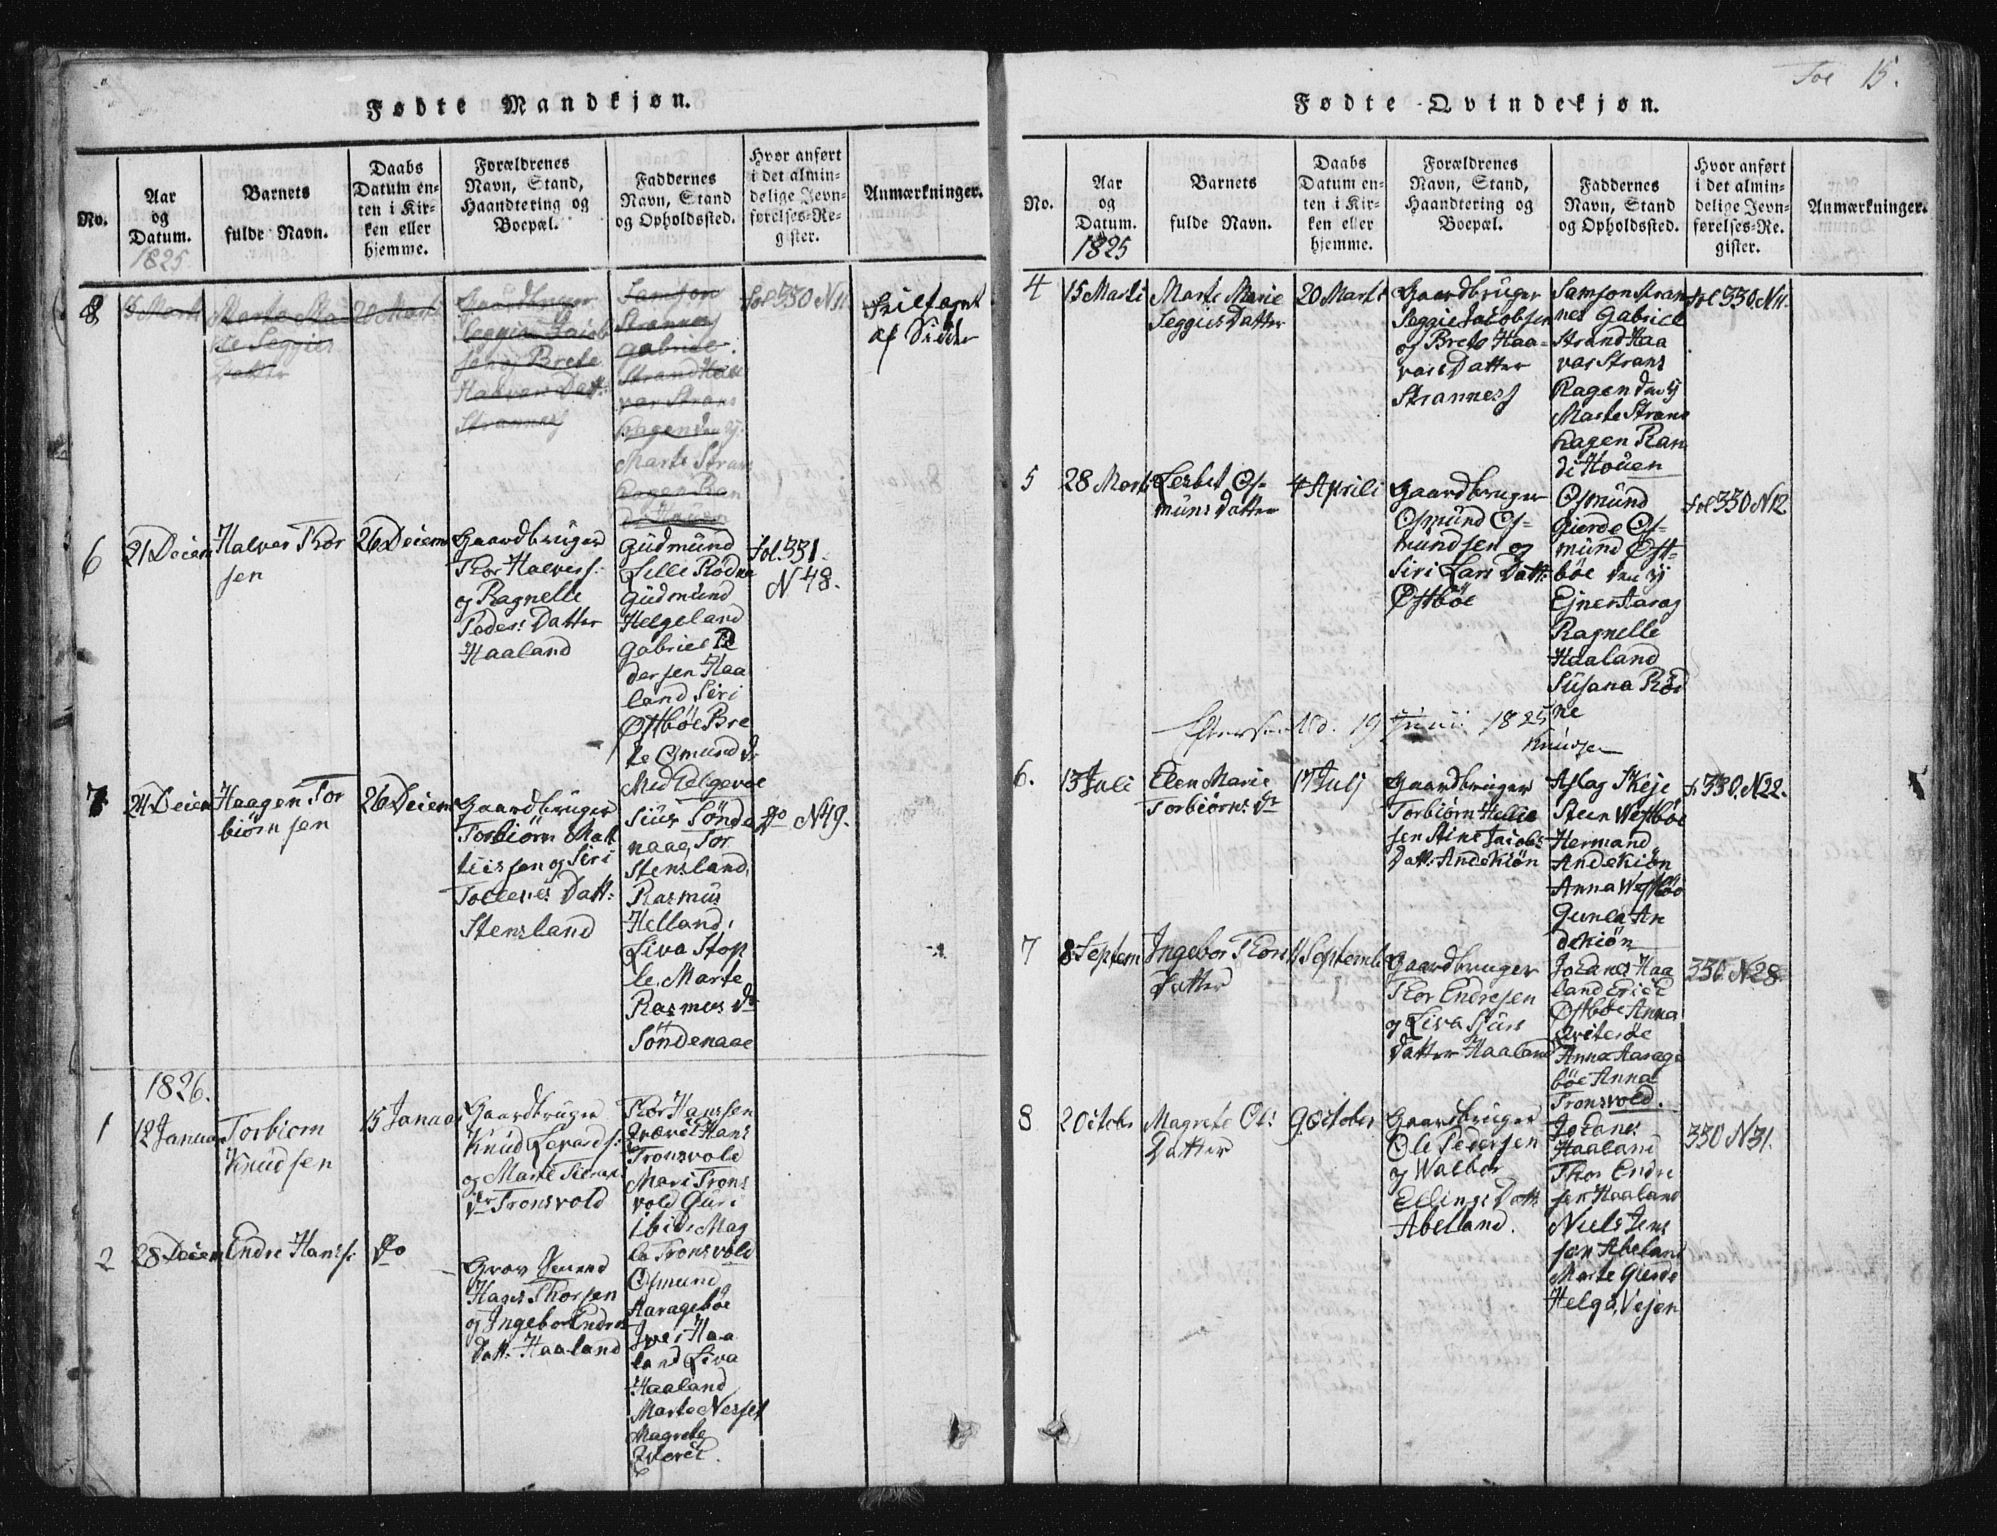 Fødte Mandkjøn.
No.
Aar
og
Datum.
1825
Barnets
fulde Navn.
Daabs
Datum en-
ten i Kir-
ken eller
hjemme.
Forældrenes
Navn, Stand,
Haandtering og
Boepæl.
Faddernes
Navn, Stand
og Opholdssted.
Hvor anført
i det almin-
delige Jevn-
førelses-Re-
gister.
Anmærkninger.
8
15 Marti
Marte Ma
rie Seggies
Datter
20 Marti
Gaardbruger
Seggie Jacob
sen og Brete
Haavars Datt:
Strannes
Samson
Strannes
Gabriel
Strand Haa
var Strans
hagen
Marte Strans
hagen Ran
di Houen
fol 330 N 11
af Siden
6
21 Decem
Halver Thor
sen
26 Decem
Gaardbruger
Thor Halvers:
og Ragnelle
Peders Datter
Haaland
Gudmund
Lille Rødne
Gudmund
Helgeland
Gabriel Pe
dersen Haa
land Siri
Østbøe Bre
te Osmund dr
fol. 331.
N 48.
7
24 Decem
Haagen Tor
biørnsen
26 Decem
Gaardbruger
Torbiørn Matt
hissen og Siri
Tollenes Datt:
Stensland
Siur Sønde
naae, Tor
Stensland,
Rasmus
Helland,
Liva Stop
le, Marte
Rasmus dr
Søndenaae
do N 49.
1826.
1
12 Januar
Torbiorn
Knudsen
15 Januar
Gaardbruger
Knud
og Marte
dr Tronsvold
Thor Hanssen
Hans
Tronsvold
Mari Trons
vold Guri
ibid. Mag
le Tronsvold
2
28 Decem
Endre Hanss:
do
Hans Thorsen
og Ingebor Endres
Datt: Haaland
Osmund
Aaragebøe
Iver Haa
land Liva
Haaland
Marte Nesset
Magrete
Fol 15.
Fødte Qvindekjøn.
No.
Aar
og
Datum.
1825
Barnets
fulde Navn.
Daabs
Datum en-
ten i Kir-
ken eller
hjemme.
Forældrenes
Navn, Stand,
Haandtering og
Boepæl.
Faddernes
Navn, Stand
og Opholdssted.
Hvor anført
i det almin-
delige Jevn-
førelses-Re-
gister.
Anmærkninger.
4
15 Marti
Marte Marie
Seggies Datter
20 Marti
Gaardbruger
Seggie Jacobsen
og Brete Haa-
vars Datter
Strannes
Samson Stran
nes Gabriel
Strand Haa
var Strans
hagen
Marte Strans
hagen Ran
di Houen
fol 330. N 11.
5
28 Marti
Lesbet Os-
muns Datter
4 Aprili
Gaardbruger
Osmund Os-
mundsen og
Siri Lars Datt:
Østbøe
Osmund
Gierde Os-
mund Øst-
bøe
Ejner Aarag
Ragnelle
Haaland
Susana Rød
ne
fol 330 N 12
19 Junii 1825
Knudsen
6.
13 Juli
Elen Marie
Torbiørns dr
17 Julj
Gaardbruger
Torbiørn Hellie
sen Stine Jacobs
Datt: Andekiøn
Aslag Skeje
Steen Westbøe
Hermand
Andekiøn
Anna Westbøe
Gunla An
dekiøn
f. 330. N 22.
7
8 Septem
Ingebor Thors
Datter
11 Septemb
Gaardbruger
Thor Endresen
og Liva Siurs
Datter Haaland
Johanes Haa
land Erich
Østbøe Anna
Anna Aarage
bøe Anna
Tronsvold.
330. N 28.
8
2 Octobr
Magrete Ols
Datter
9 October
Gaardbruger
Ole Pedersen
og Walbor
Ellings Datt:
Abelland.
Johanes
Haaland
Thor Endre
sen Haaland
Niels Jens
sen Abeland
Marte Gierde
Helga, Vejen
330 N 31.